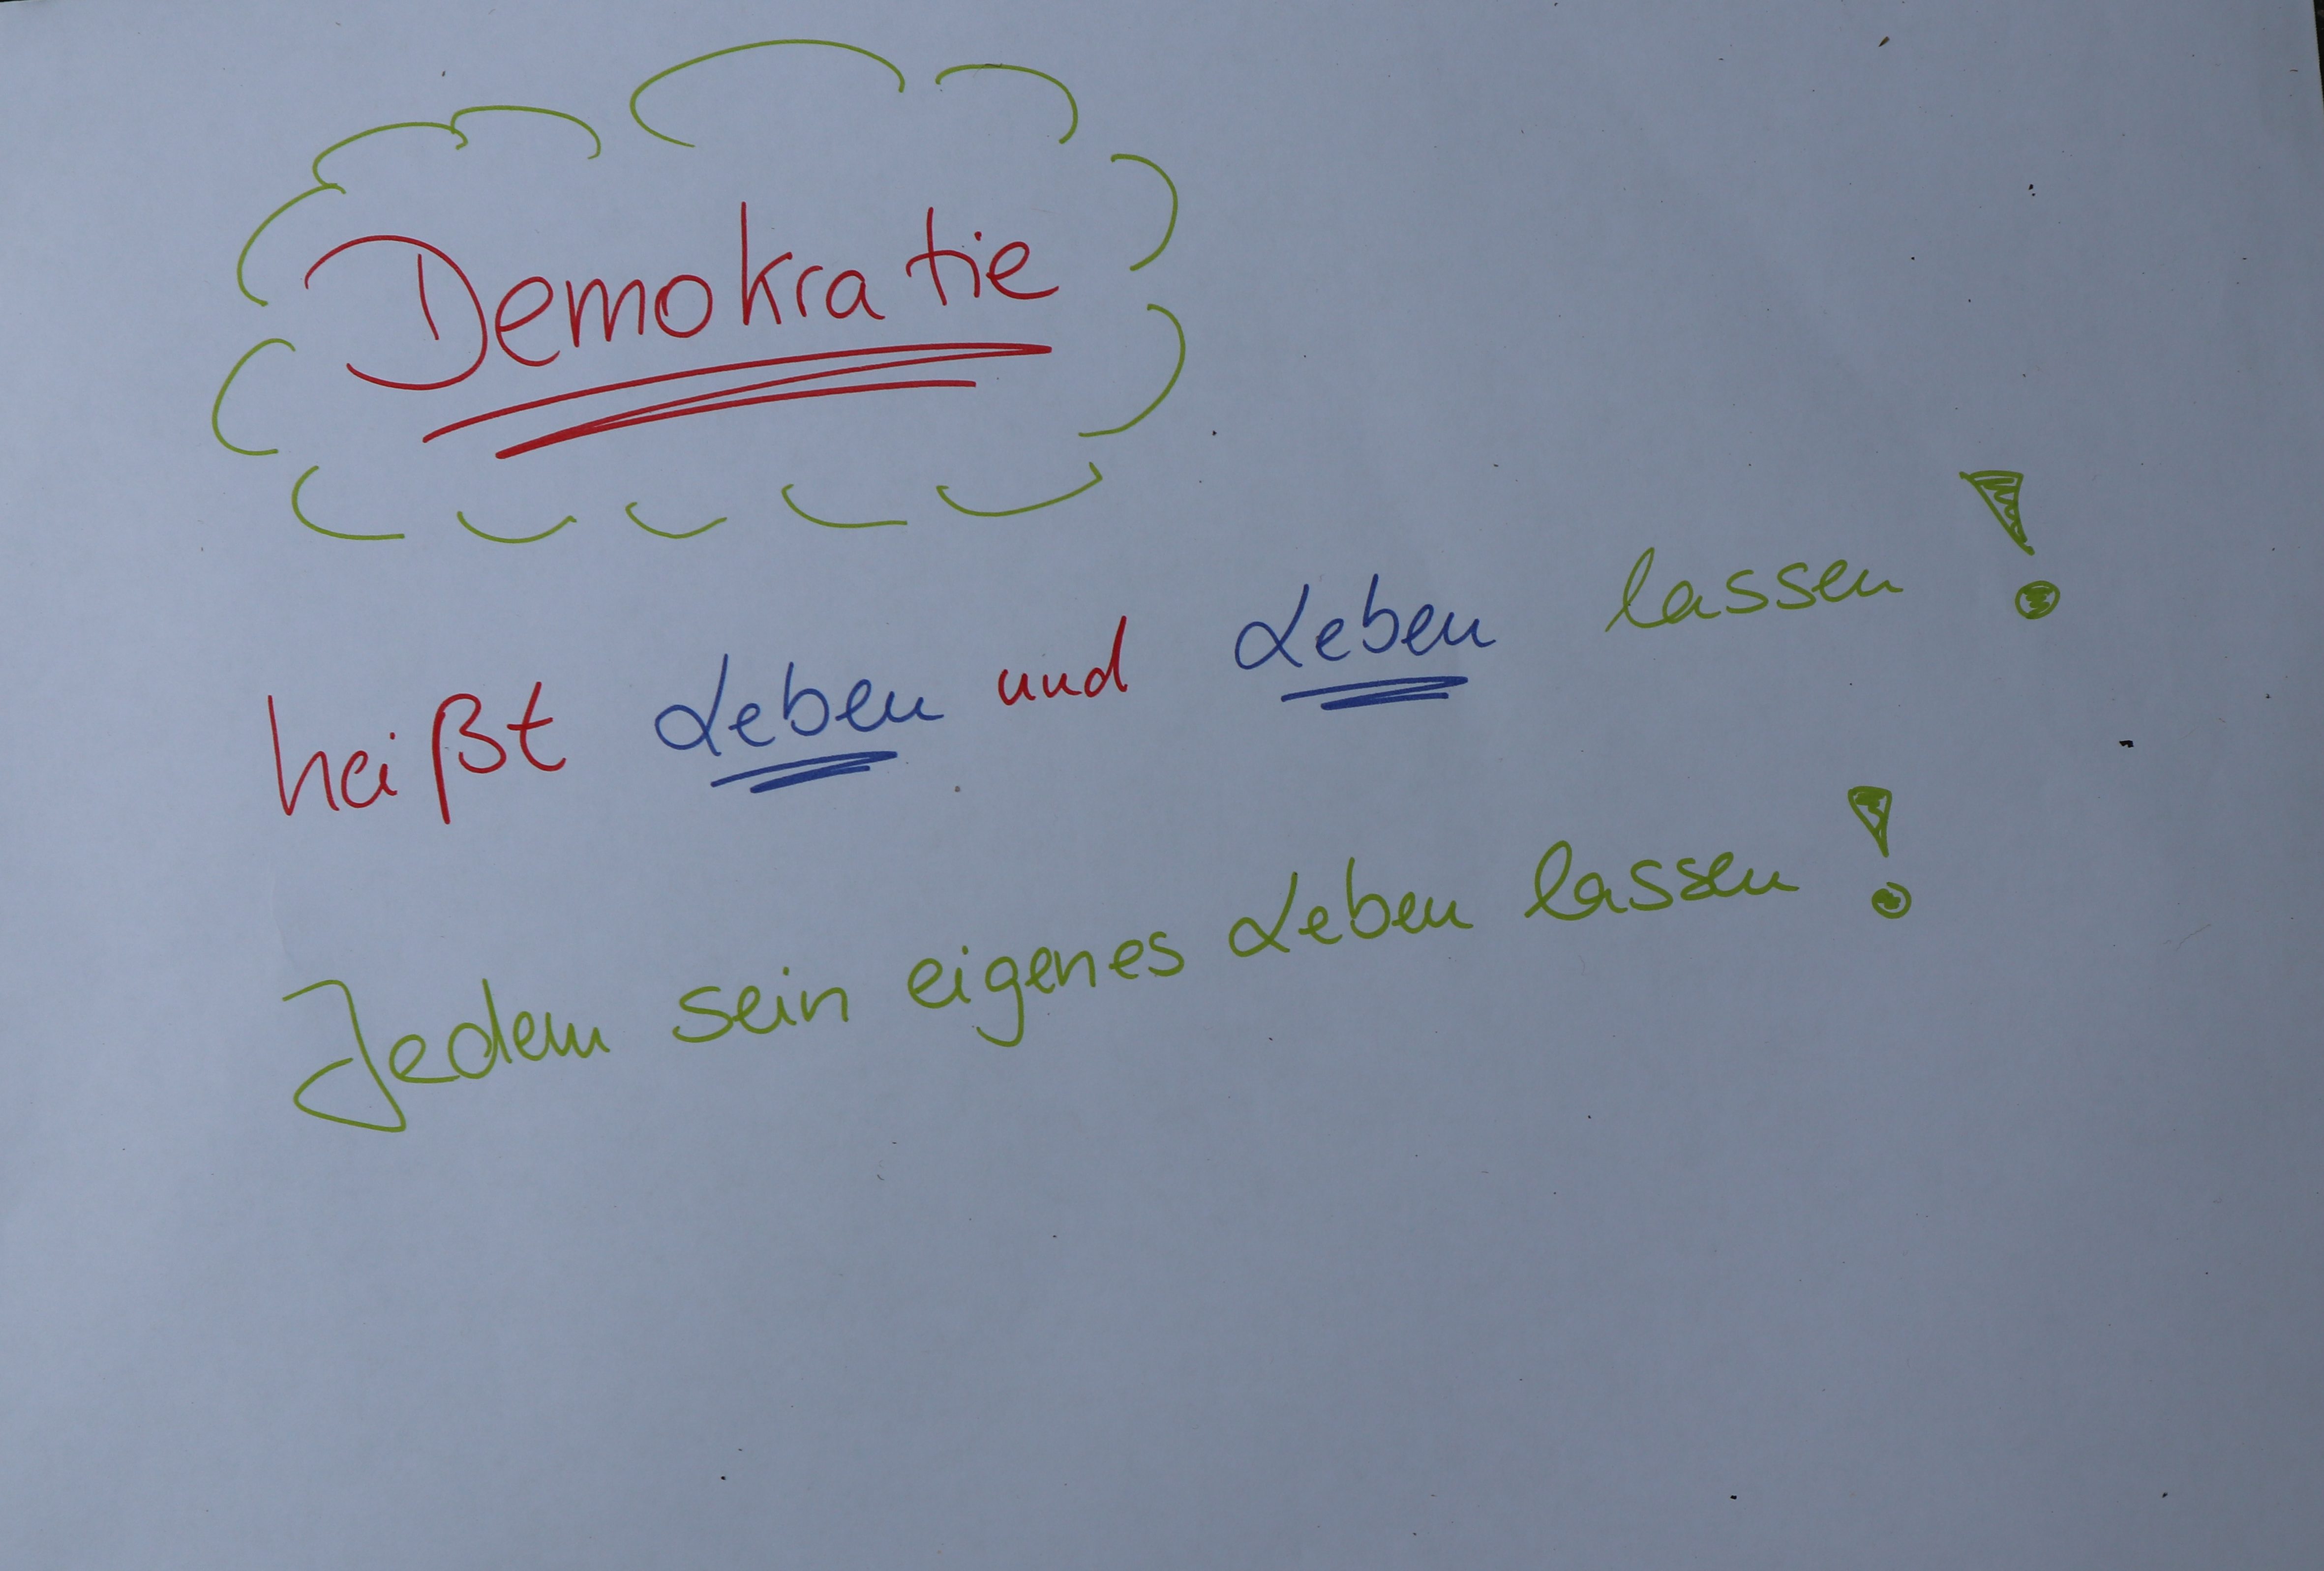 Demokratie
heißt Leben und Leben lassen!
Jedem sein eigenes Leben lassen!